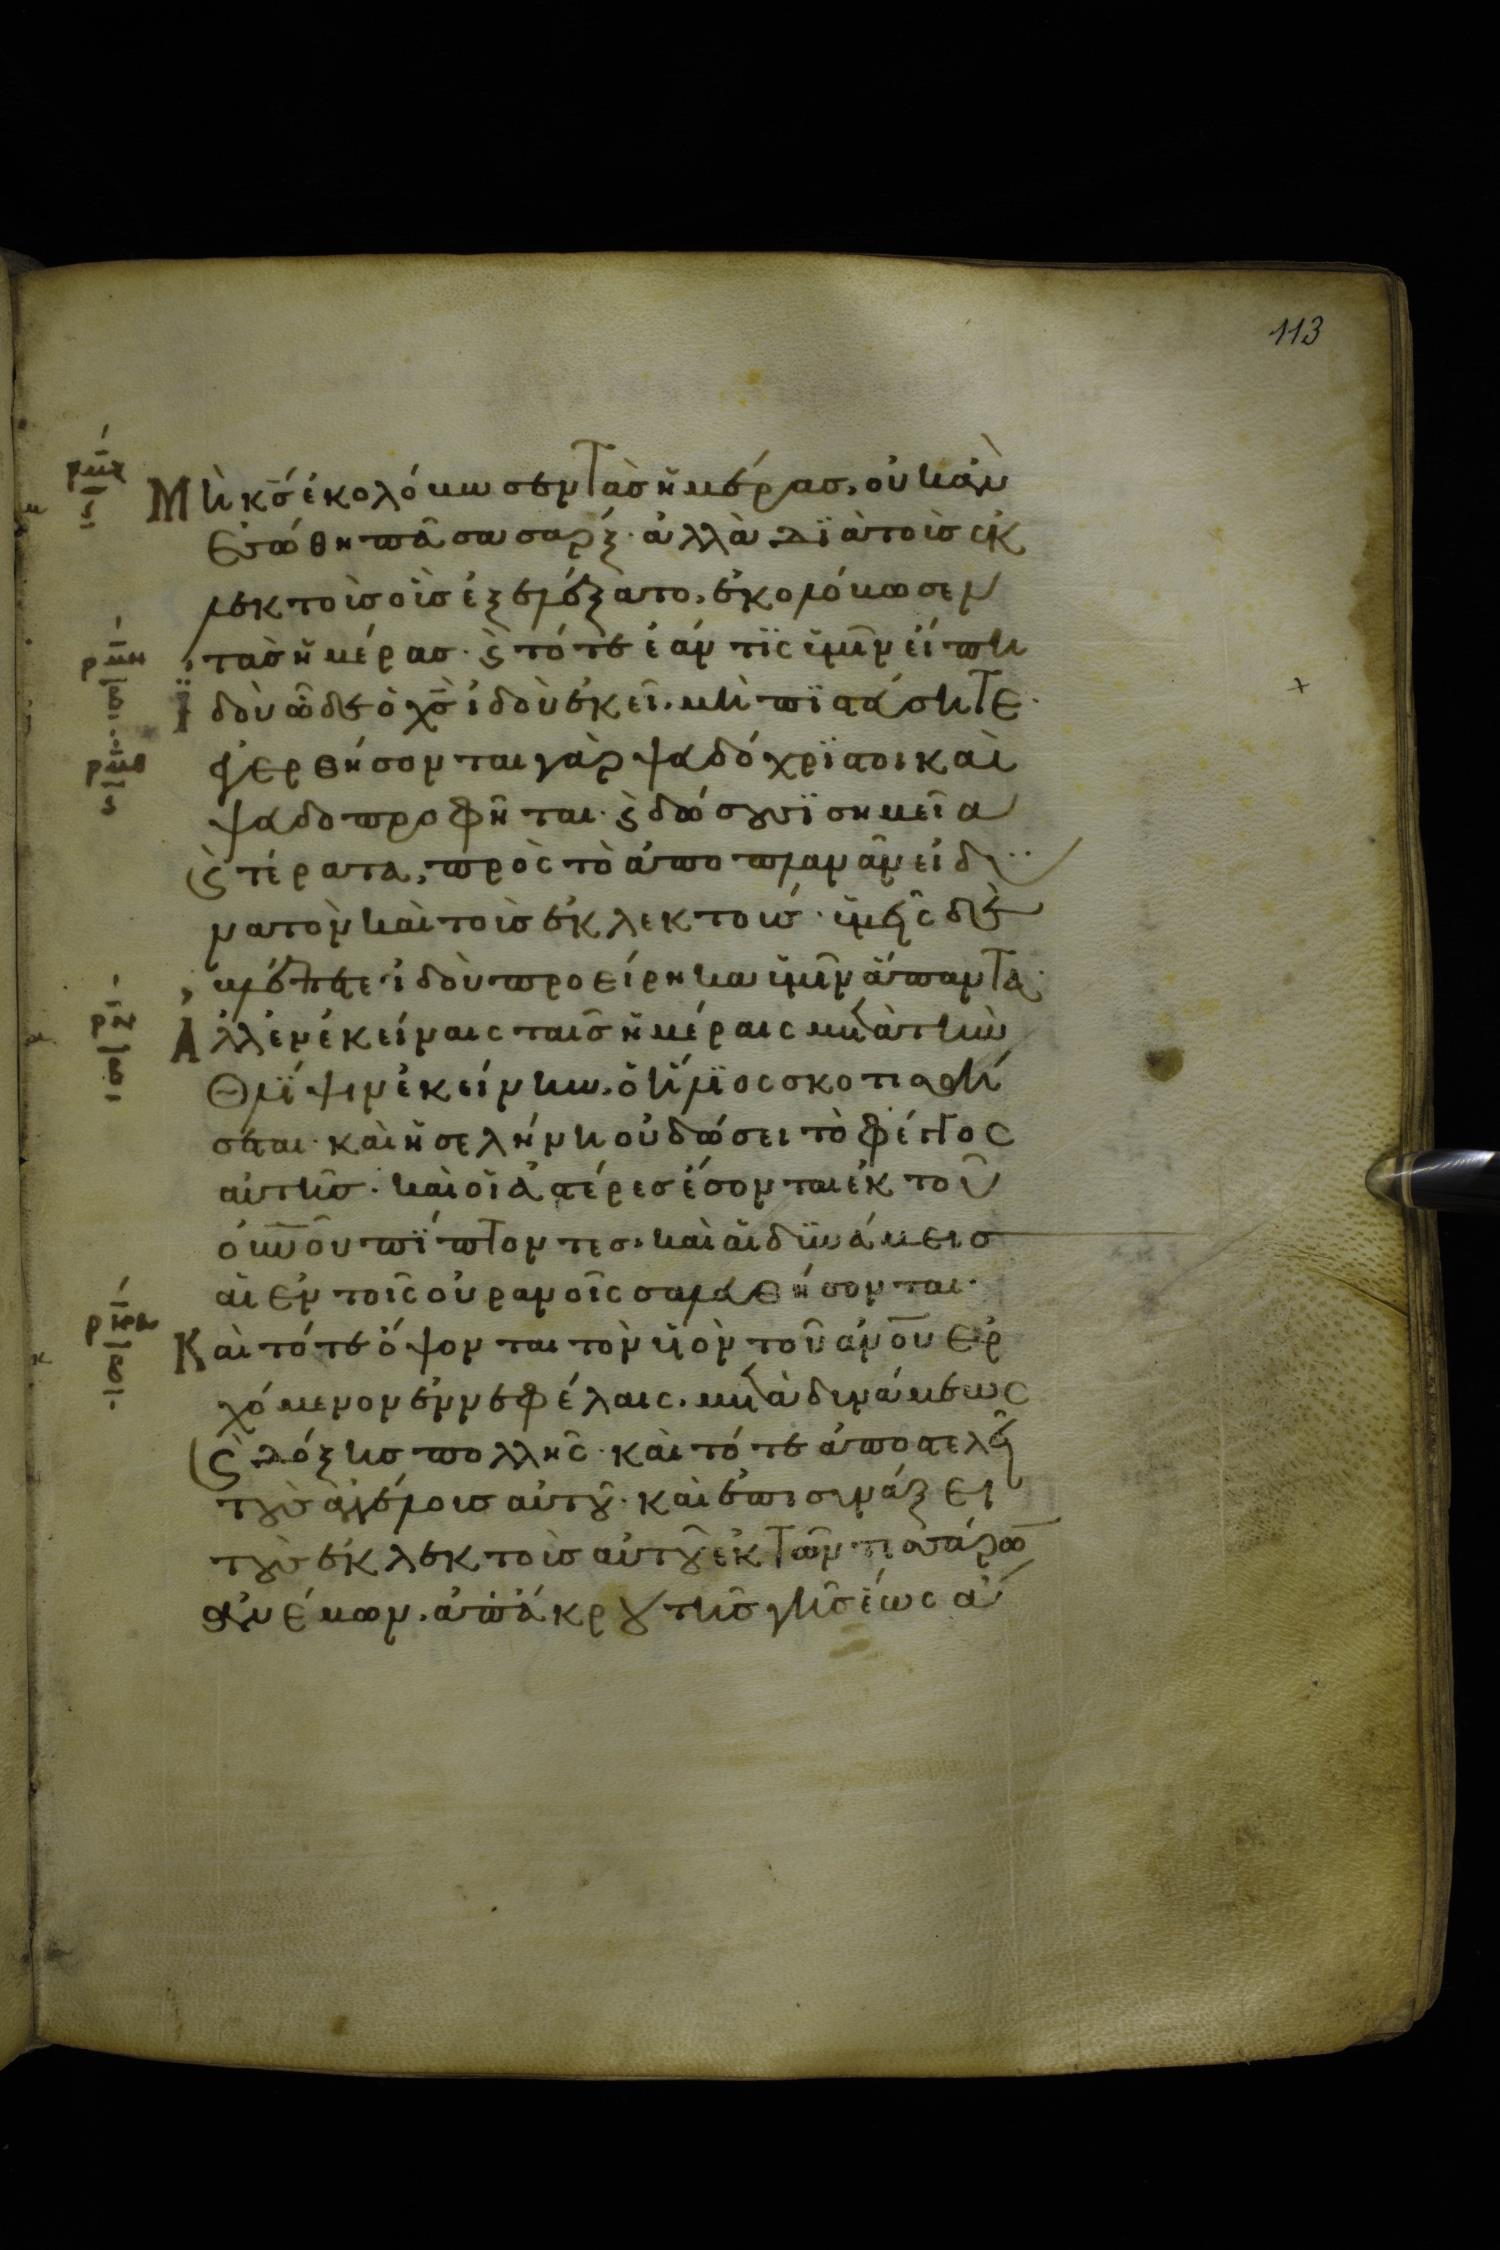 113
ρμζ
ϛ
Μὴ κ̅ς̅ ἐκολόβωσεν τὰς ἡμέρας, οὐκ ἂν
ἐσώθη πᾶσα σάρξ· ἀλλὰ διὰ τοὺς ἐκ
λεκτοὺς οὓς ἐξελέξατο, ἐκολόβωσεν
ρμη
β
τὰς ἡμέρας. ϗ τότε ἐάν τις ὑμῖν εἴπη
ἰδοὺ ὧδε ὁ χ̅ς̅ ἰδοὺ ἐκεῖ, μὴ πιστεύσητε·
ρμθ
ϛ
ἐγερθήσονται γὰρ ψευδόχριστοι καὶ
ψευδοπροφῆται· ϗ δώσουσι σημεῖα
ϗ τέρατα, πρὸς τὸ ἀποπλανᾶν εἰ δυ
νατὸν καὶ τοὺς ἐκλεκτούς· ὑμεῖς δὲ
βλέπετε· ἰδοὺ προείρηκα ὑμῖν ἅπαντα·
ρν
β
Ἀλλ' ἐν ἐκείναις ταῖς ἡμέραις μετὰ τὴν
θλίψιν ἐκείνην, ὁ ἥλιος σκοτισθή
σεται· καὶ ἡ σελήνη οὐ δώσει τὸ φέγγος
αὐτῆς· καὶ οἱ ἀστέρες ἔσονται ἐκ τοῦ
ο̅υ̅ν̅ο̅υ̅ πίπτοντες, καὶ αἱ δυνάμεις
αἱ ἐν τοῖς οὐρανοῖς σαλευθήσονται·
ρνα
β
Καὶ τότε ὄψονται τὸν υἱὸν τοῦ α̅ν̅ο̅υ̅ ἐρ
χόμενον ἐν νεφέλαις, μετὰ δυνάμεως
ϗ δόξης πολλῆς· καὶ τότε ἀποστελεῖ
τοὺς ἀγγέλους αὐτοῦ· καὶ ἐπισυνάξει
τοὺς ἐκλεκτοὺς αὐτοῦ ἐκ τῶν τεσσάρω̅
ἀνέμων, ἀπ' ἄκρου τῆς γῆς ἕως ἄ